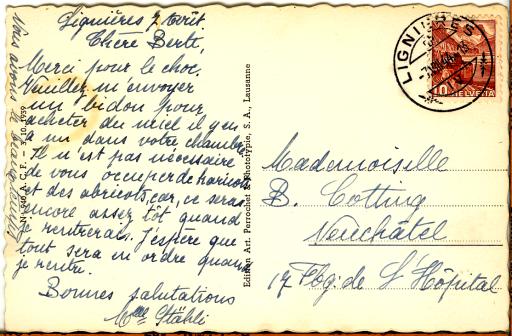 Lignières 7 Août
Chère Berti,
Merci pour le choc.
Veuillez m'envoyer
un bidon pour
acheter du miel il y en
a un dans votre chambre.
Il n'est pas nécessaire
de vous occuper de haricots
et des abricots, car, ce sera
encore assez tôt quand
je rentrerais. J'espère que
tout sera en ordre quand
je rentre.
Bonnes salutations
Mlle Stähli
Nous avons le
No 940 A. C. F. - 3.10.1939
Edition Art. Perrochet & Phototypie, S. A., Lausanne
LIGNIÈRES
10 HELVETIA
Mademoiselle
B. Cotting
Neuchâtel
17 Fbg. de l'Hôpital